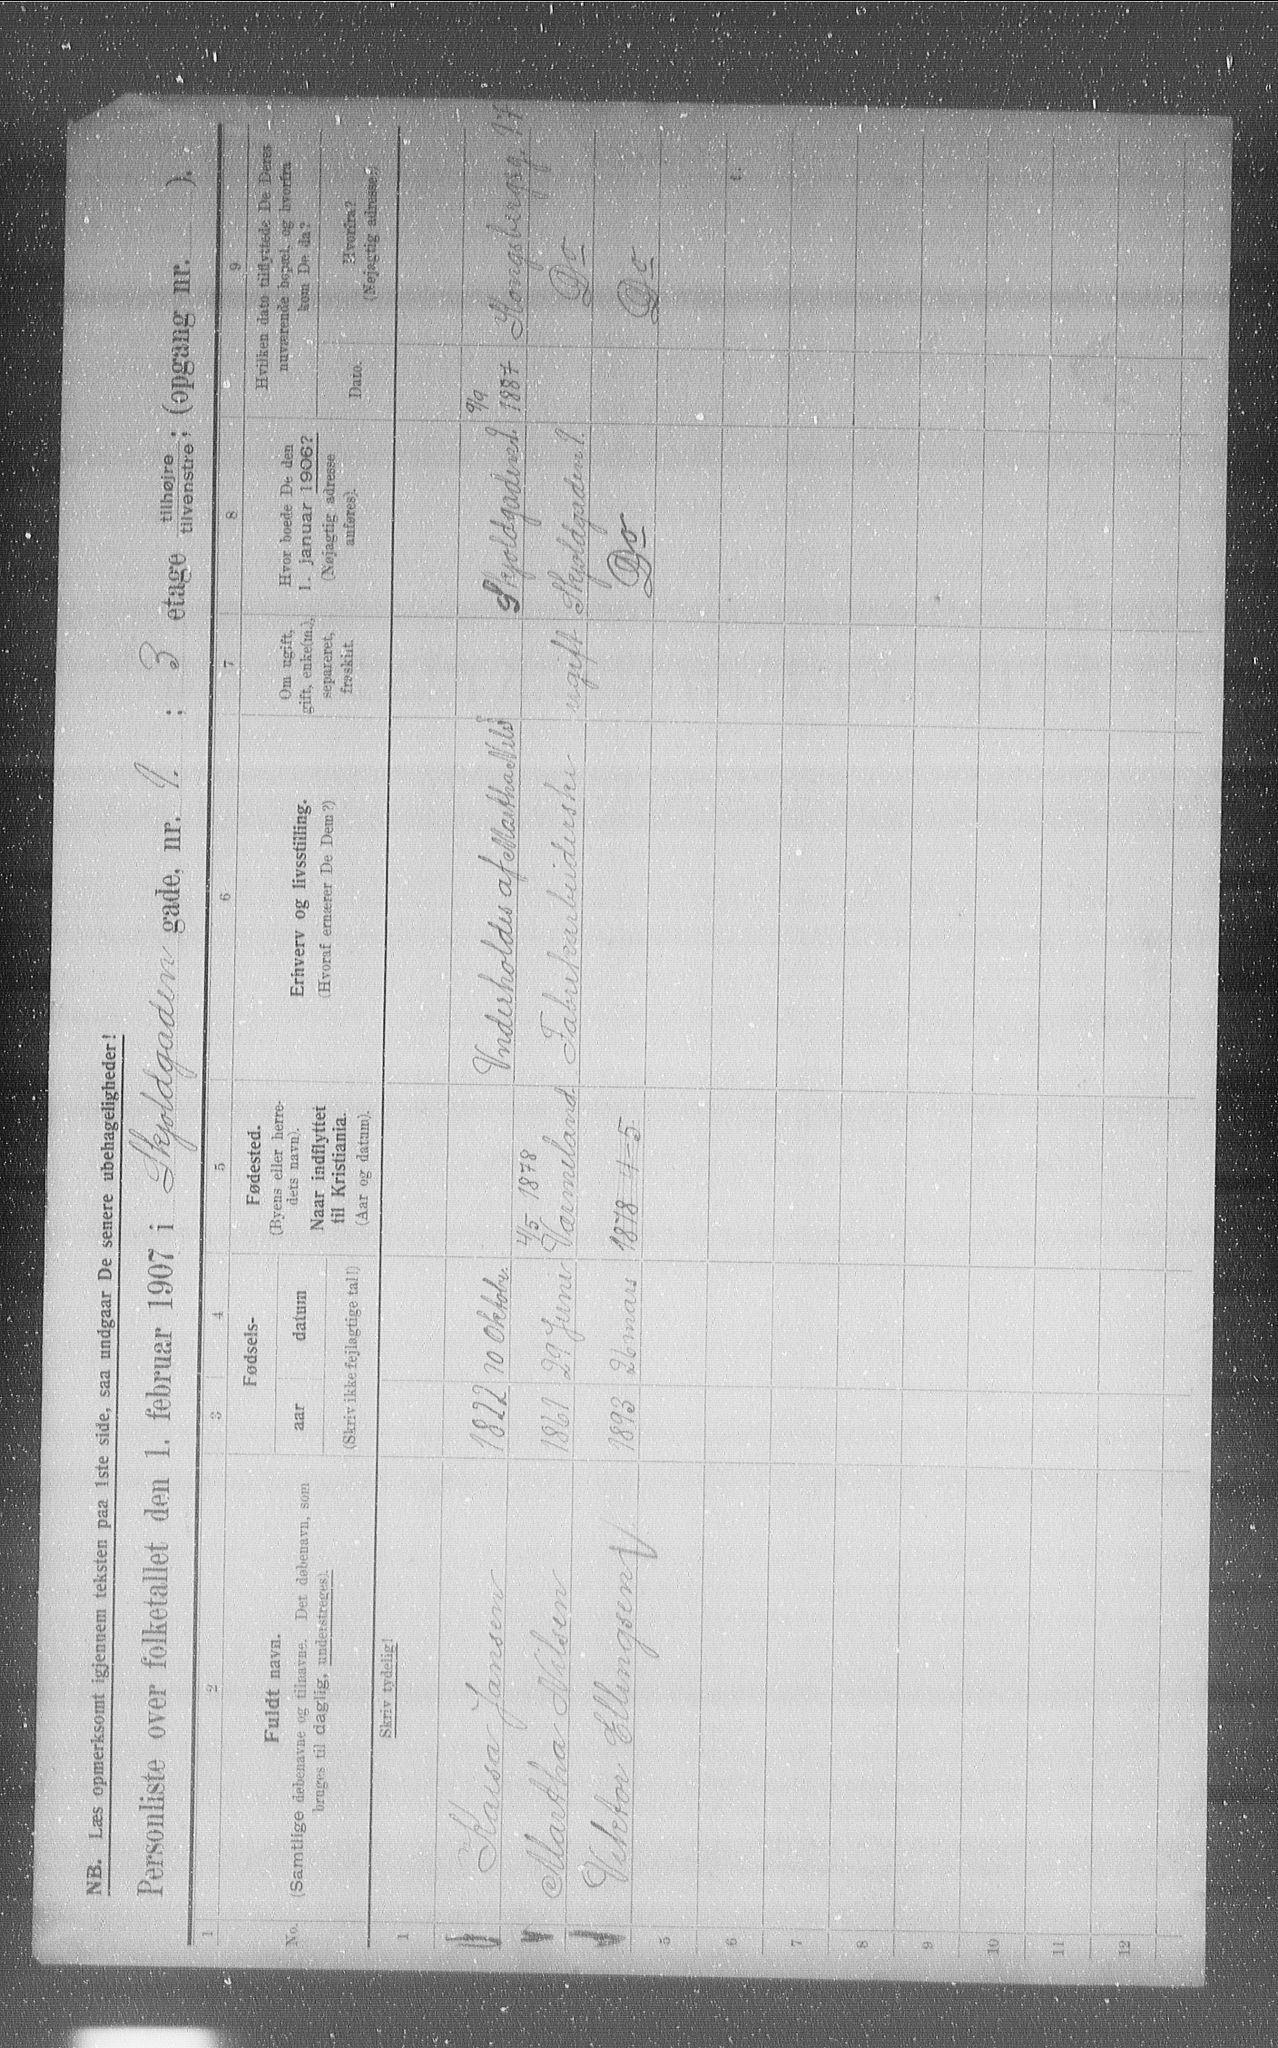 NB. Læs opmerksomt igjennem teksten paa 1ste side, saa undgaar De senere ubehageligheder!
Personliste over folketallet den 1. februar 1907 i Skjoldgaden gade, nr. 1. ; 3 etage tilhøjre / tilvenstre ; (opgang nr. ).
1 2 3 4 5 6 7 8 9
No.
Fuldt navn.
(Samtlige døbenavne og tilnavne. Det døbenavn, som
bruges til daglig, understreges).
Fødsels-
aar datum
(Skriv ikke fejlagtige tal!)
Fødested.
(Byens eller herre-
dets navn).
Naar indflyttet
til Kristiania.
(Aar og datum).
Erhverv og livsstilling.
(Hvoraf ernærer De Dem?)
Om ugift,
gift, enke(m.),
separeret,
fraskilt.
Hvor boede De den
1. januar 1906?
(Nøjagtig adresse
anføres).
Hvilken dato tilflyttede De Deres
nuværende bopæl, og hvorfra
kom De da?
Dato.
Hvorfra?
(Nøjagtig adresse.)
Skriv tydelig!
1
Kaisa Jansen 1822 10 Oktobr. Underholdes af Martha Nils Skjoldgaden 1. 9/9 1887 Kongsbergg. 17
4/5 1878
Martha Nilsen 1861 29 Juni Varmeland Fabrikarbeiderske ugift Skjoldgaden 1. Do
Viktor Ellingsen 1893 26 mars 1878 4-5 Do Do
t.
5
6
7
8
9
10
11
12